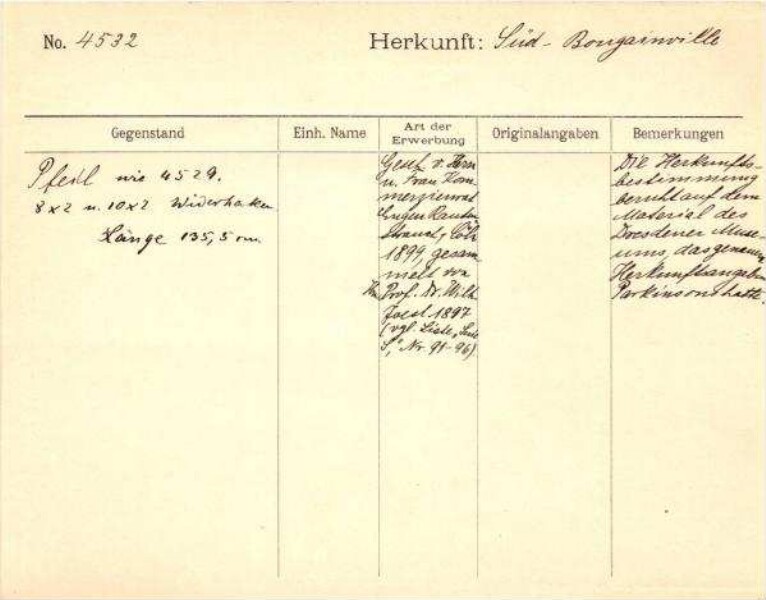 No. 4532
Herkunft: Süd-Bougainville
Gegenstand
Einh. Name
Art der
Erwerbung
Originalangaben
Bemerkungen
Pfeil wie 4529.
8x2 u. 10x2 Widerhaken.
Länge 135,5 cm.
Gesch. v. Herrn
u. Frau Kom
merzienrat
Eugen Rauten
strauch, Cöln
1899, gesam
melt von
Prof. Dr. Wilh.
Joest 1897
(vgl. Liste
S," Nr. 91-96)
Die Herkunfts-
bestimmung
beruht auf dem
Material des
Dresdener Muse-
ums, das genauere
Herkunftsangaben
Parkinsons hatte.